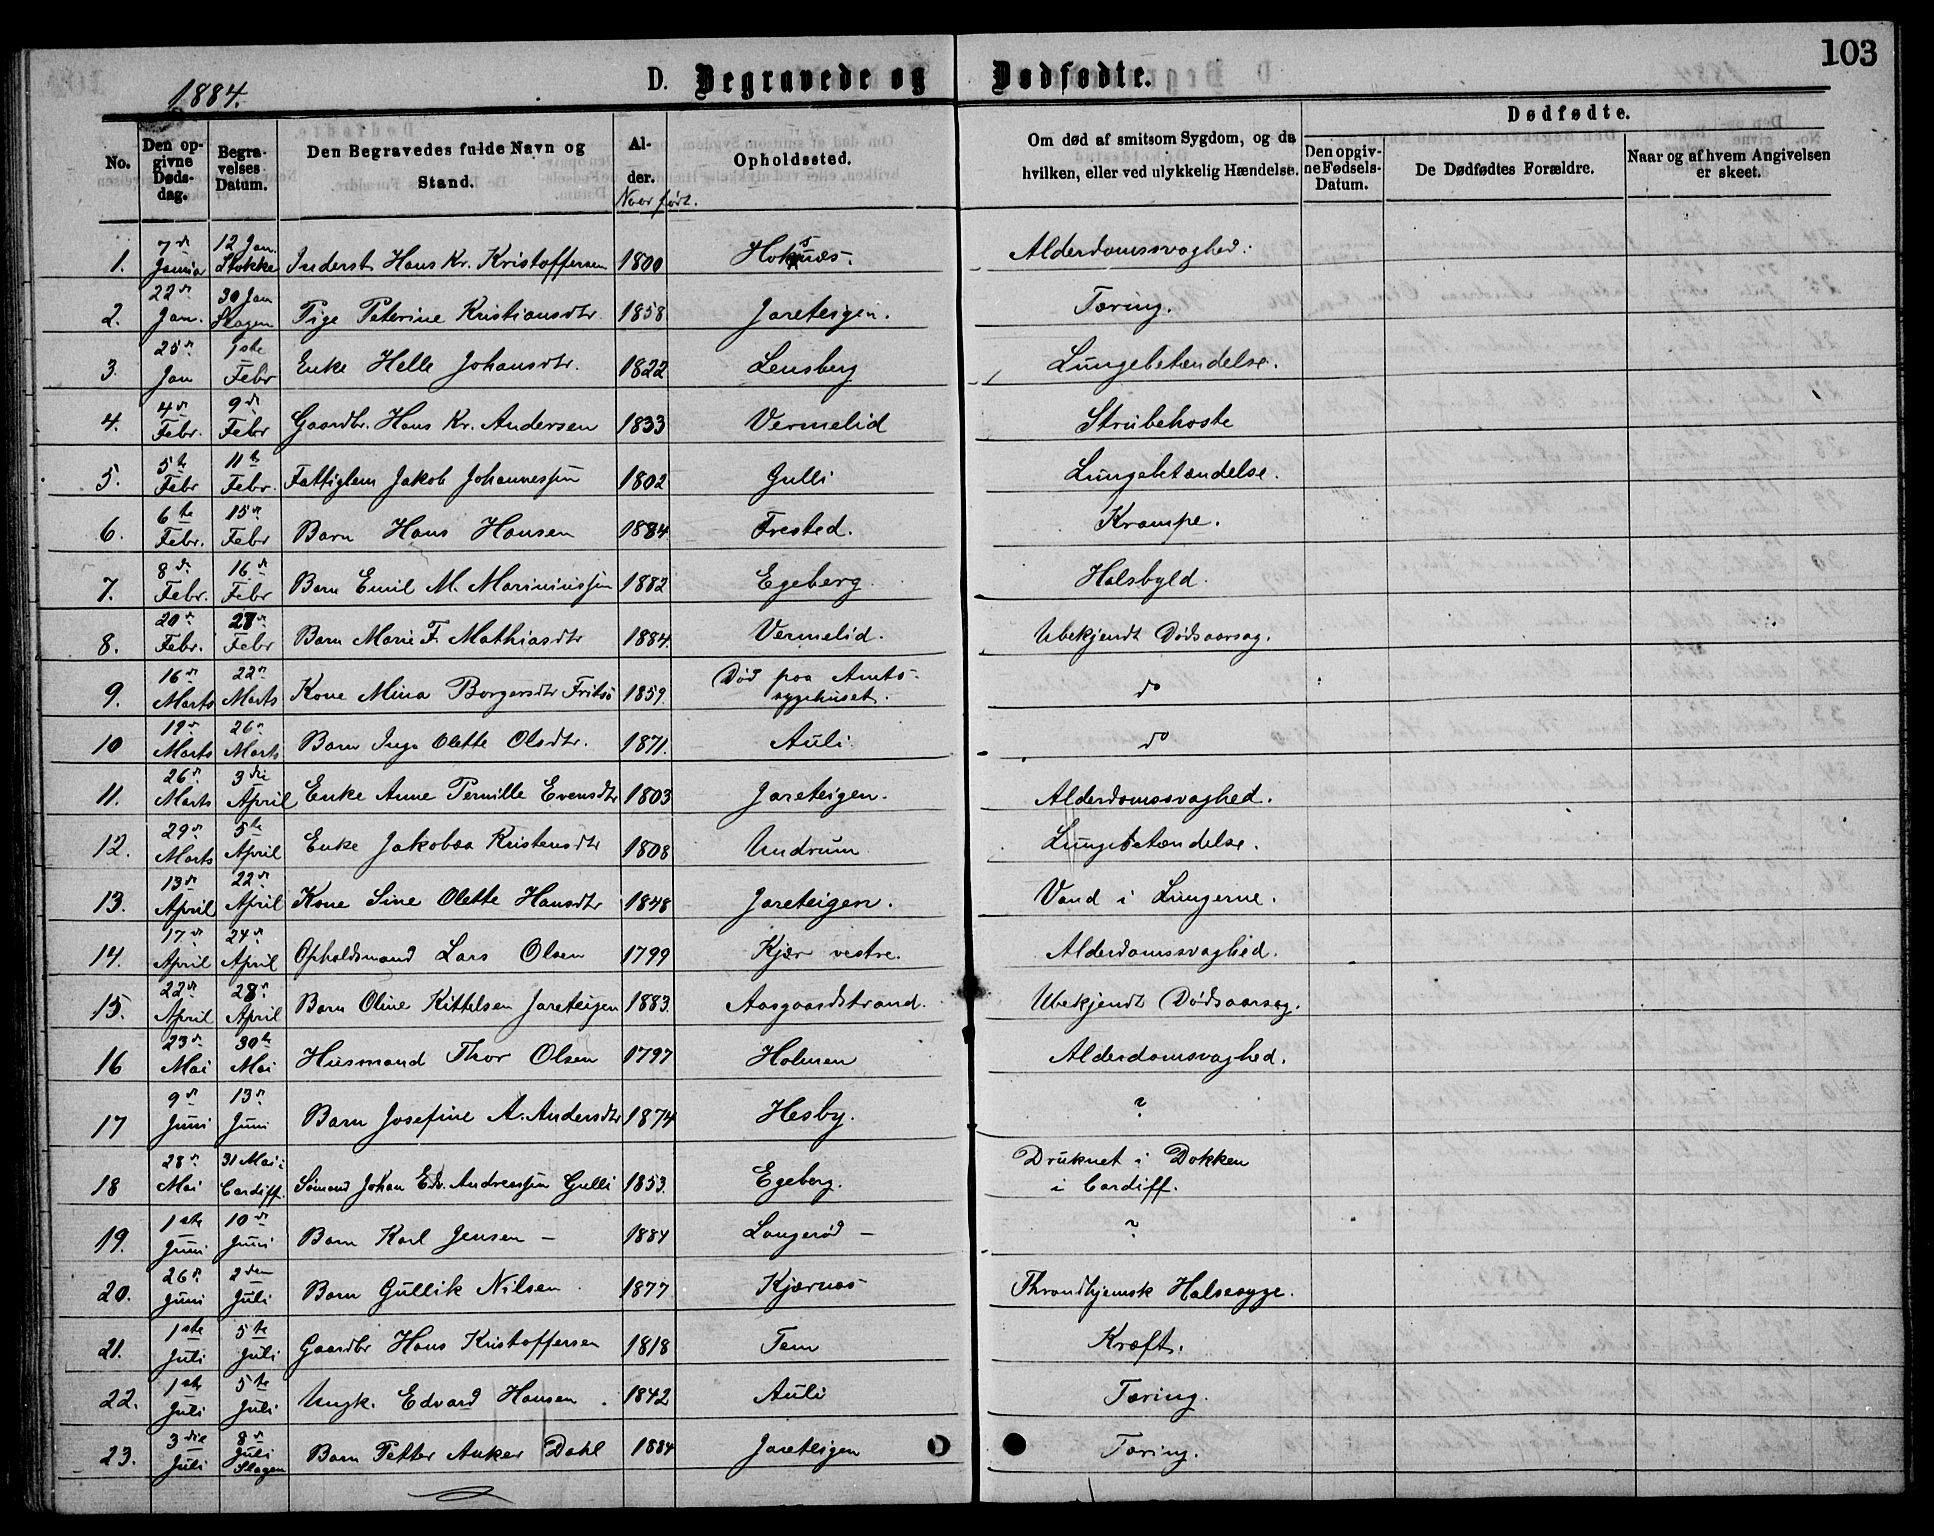 103
1884.
D. Begravede og Dødfødte.
No.
Den opgivne Dødsdag.
Begravelses Datum.
Den Begravedes fulde Navn og Stand.
Alder.
Naar født.
Opholdssted.
Om død af smitsom Sygdom, og da hvilken, eller ved ulykkelig Hændelse.
Dødfødte.
Den opgivne Fødsels-Datum.
De Dødfødtes Forældre.
Naar og af hvem Angivelsen er skeet.
1. 7de Januar 12 Jan. Stokke Inderst Hans Kr. Kristoffersen 1800 Alderdomssvaghed.
2. 22de Jan. 30 Jan Slagen Pige Peterine Kristiansdtr. 1858 Jareteigen. Tæring.
3. 25de Jan 1ste Febr Enke Helle Johansdtr. 1822 Lensberg Lungebetændelse.
4. 4de Febr. 9de Febr Gaardbr. Hans Kr. Andersen 1833 Vermelid Strubehoste
5. 5te Febr 11te Febr. Fattiglem Jakob Johannessen 1802 Gulli Lungebetændelse.
6. 6te Febr. 15de Febr Barn Hans Hansen 1884 Frested. Krampe.
7. 8de Febr. 16de Febr Barn Emil M. Mariniussen 1882 Egeberg Halsbyld.
8. 20de Febr. 27de Febr Barn Marie F. Mathiasdtr 1884. Vermelid. Ubekjendt Dødsaarsag.
9. 16de Marts 22de Marts Kone Mina Borgersdtr 1859. Død paa Amtssygehuset. do
10 19de Marts 26de Marts Barn Inga Olette Olsdtr. 1871. Auli. do
11. 26de Marts 3die April Enke Anne Pernille Evensdtr 1803 Jareteigen. Alderdomssvaghed.
12. 29de Marts 5te April Enke Jakobea Kristensdtr 1808 Undrum Lungebetændelse.
13. 13de April 22de April Kone Sine Olette Hansdtr 1848 Jareteigen. Vand i Lungerne.
14. 17de April 24de April Opholdsmand Lars Olsen 1799 Kjær vestre. Alderdomssvaghed.
15. 22de April 28de April Barn Oline Kittelsen Jareteigen 1883. Aasgaardstrand. Ubekjendt Dødsaarsag.
16 23de Mai 30te Mai Husmand Thor Olsen 1797 Holmen Alderdomsvaghed.
17 9de Juni 13de Juni Barn Josefine A. Andersdtr 1874 Hesby. ?
18 28de Mai 31 Mai i Cardiff. Sømand Johan Edv. Andreassen Gulli 1853. Egeberg. Druknet i Dokken
i Cardiff.
19. 1ste Juni 10de Juni Barn Karl Jensen – 1884 Langerød – ?
20. 26de Juni 2den Juli Barn Gullik Nilsen 1877 Kjærnæs Throndhjemsk Halsesyge.
21. 1ste Juli 5te Juli Gaardbr Hans Kristoffersen 1818 Tem Kræft.
22. 1ste Juli 5te Juli Ungk. Edvard Hansen 1842 Auli Tæring.
23. 3die Juli 8de Juli Slagen Barn Petter Anker Dahl 1884 Jareteigen Tæring.